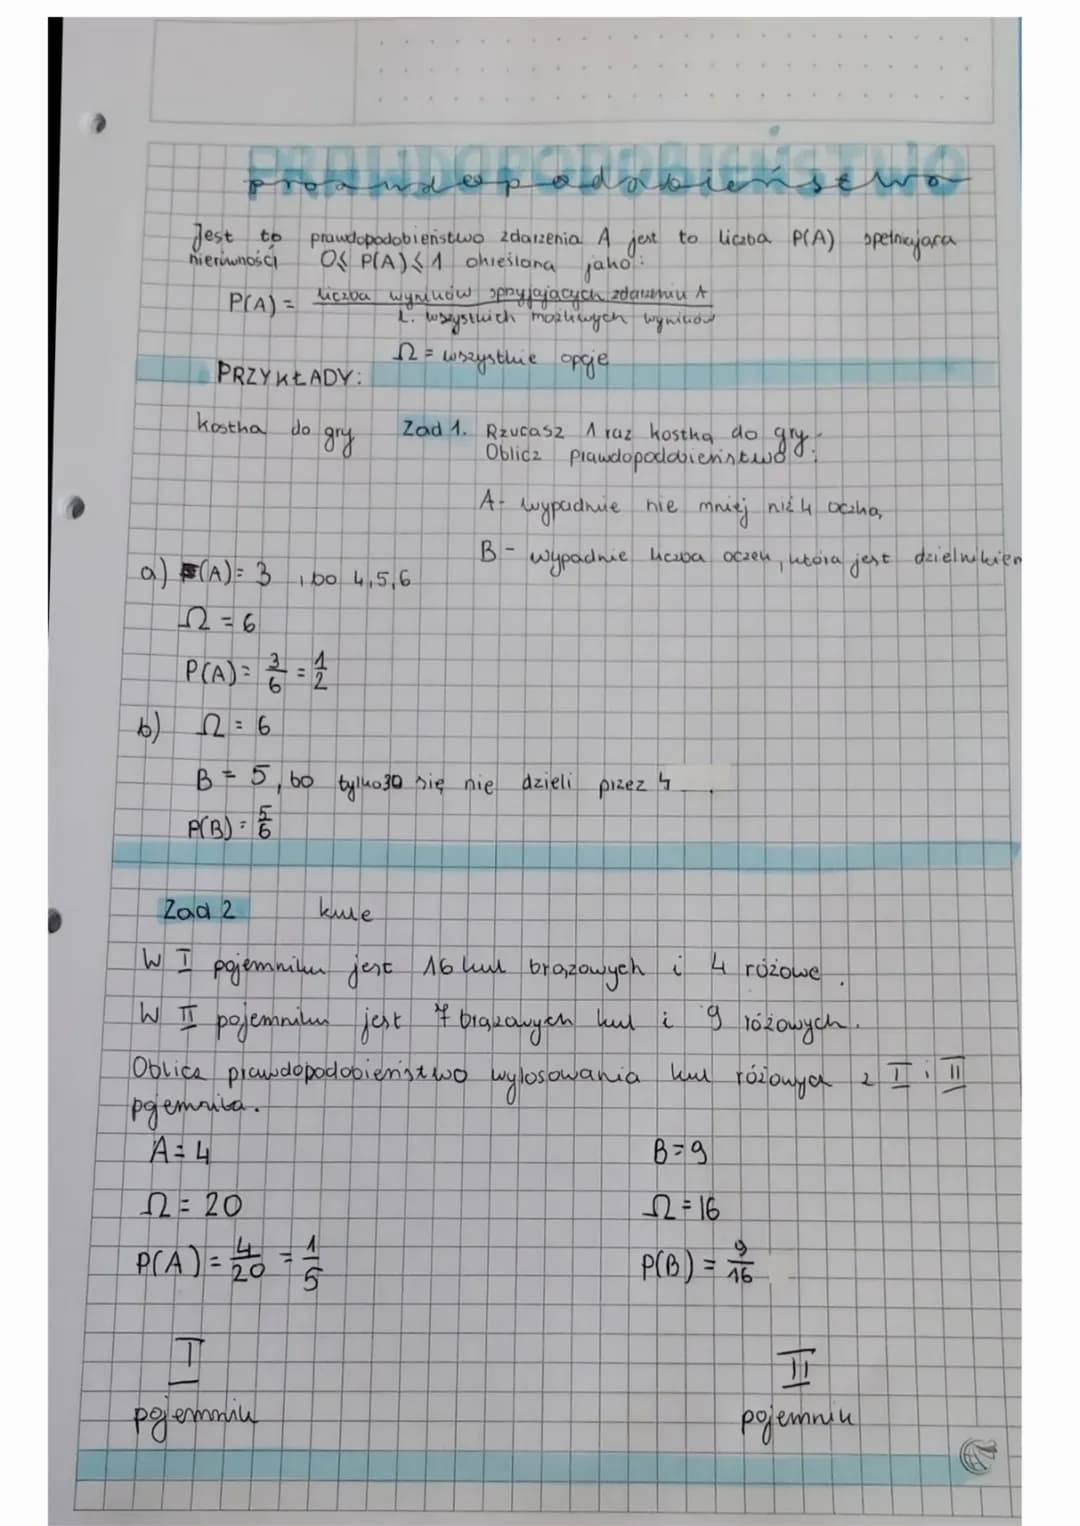 PRAWDOPODOBIEŃSTWO
prawdopodobieństwo
Jest to prawdopodobieństwo zdarzenia A jest to liczba P(A) spełniająca
nierówności 0≤ P(A)≤1 określona jako:
P(A) = liczba wyników sprzyjających zdarzeniu A
l. wszystkich możliwych wyników
Ω = wszystkie opcje
PRZYKŁADY:
kostka do gry Zad 1. Rzucasz 1 raz kostką do gry.
Oblicz prawdopodobieństwo:
A- wypadnie nie mniej niż 4 oczka,
B- wypadnie liczba oczek, która jest dzielnikiem
a) (A)= 3 , bo 4,5,6
Ω = 6
P(A)= 3/6 = 1/2
b) Ω = 6
B = 5, bo tylko 30 się nie dzieli przez 4
P(B) = 5/6
Zad 2 kule
W I pojemniku jest 16 kul brązowych i 4 różowe.
W II pojemniku jest 7 brązowych kul i 9 różowych.
Oblicz prawdopodobieństwo wylosowania kul różowych z I i II
pojemnika.
A= 4 B=9
Ω = 20 Ω = 16
P(A) = 4/20 = 1/5 P(B) = 9/16
I II
pojemnik pojemnik